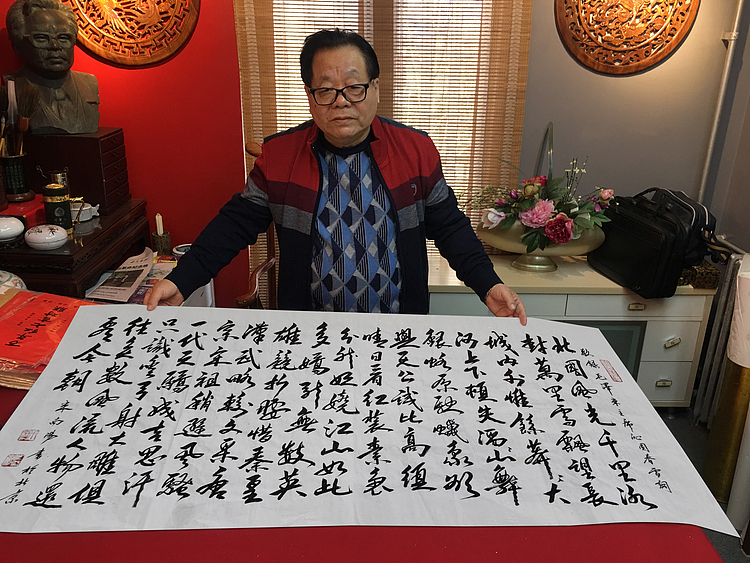 敬録毛澤東主席沁园春雪詞
北國風光千里冰
封萬里雪飄望長
城内外惟餘莽莽大
河上下頓失滔滔山舞
銀蛇原馳蠟象欲
與天公試比高須
晴日看红装素裹
分外妖嬈江山如此
多嬌引無數英
雄競折腰惜秦皇
漢武略輸文采唐
宗宋祖稍遜風騷
一代天驕成吉思汗
只識彎弓射大雕俱
往矣數風流人物還
看今朝